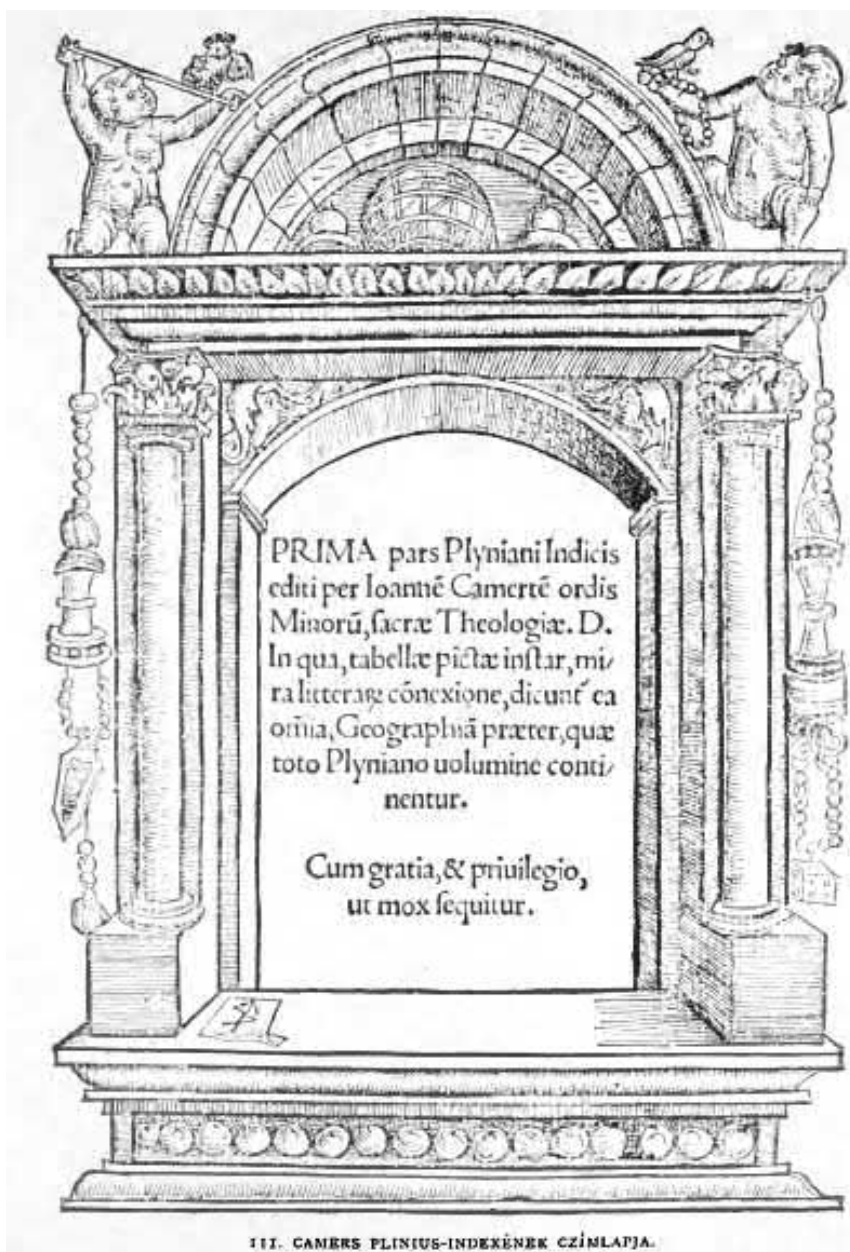 PRIMA pars Plyniani Indicis
editi per Ioannē Camertē ordīs
Minorū, ſacræ Theologiæ. D.
In qua, tabellæ pictæ inſtar, mi⸗
ra litteraꝝ cōnexione, dicunt᷑ ea
om̄ia, Geographiā præter, quæ
toto Plyniano uolumine conti⸗
nentur.
Cum gratia, & priuilegio,
ut mox ſequitur.
III. CAMERS PLINIUS-INDEXÉNEK CZÍMLAPJA.